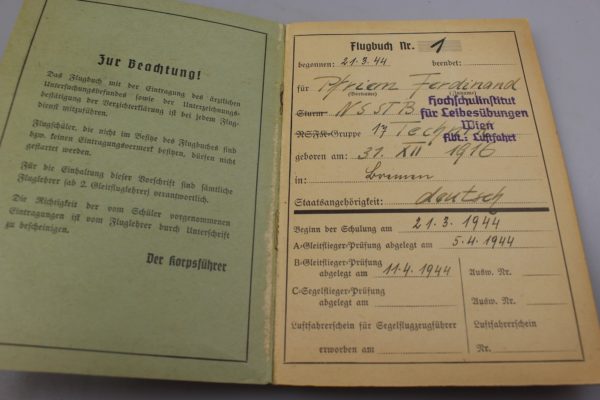 Zur Beachtung!
Das Flugbuch mit der Eintragung des ärztlichen
Untersuchungsbefundes sowie der Unterzeichnungs-
bestätigung der Verzichterklärung ist bei jedem Flug-
dienst mitzuführen.
Flugschüler, die nicht im Besitze des Flugbuches sind
bzw. keinen Eintragungsvermerk besitzen, dürfen nicht
gestartet werden.
Für die Einhaltung dieser Vorschrift sind sämtliche
Fluglehrer (ab 2. Gleitfluglehrer) verantwortlich.
Die Richtigkeit der vom Schüler vorgenommenen
Eintragungen ist vom Fluglehrer durch Unterschrift
zu bescheinigen.
Der Korpsführer
Flugbuch Nr. 1
begonnen: 21.3.44 beendet:
für Pfriem Ferdinand
(Vorname) (Zuname)
Sturm NSSTB
NSFK-Gruppe 17
Hochschulinstitut
für Leibesübungen
Wien
Abt.: Luftfahrt
geboren am: 31. XII 1916
in: Bremen
Staatsangehörigkeit: deutsch
Beginn der Schulung am 21.3.1944
A-Gleitflieger-Prüfung abgelegt am 5.4.1944
B-Gleitflieger-Prüfung
abgelegt am 11.4.1944 Ausw. Nr.
C-Segelflieger-Prüfung
abgelegt am Ausw. Nr.
Luftfahrerschein für Segelflugzeugführer Luftfahrerschein
erworben am Nr.